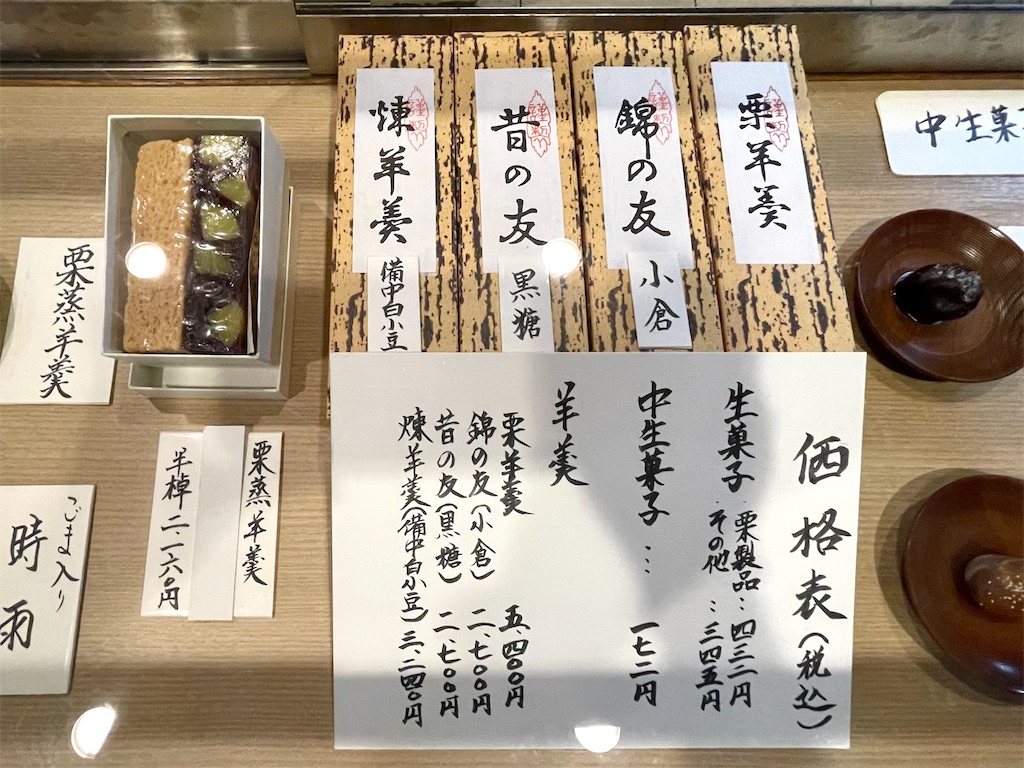 栗羊羹
錦の友
小倉
昔の友
黒糖
煉羊羹
備中白小豆
中生菓
価格表(税込)
生菓子…栗製品…四三二円
その他…三四五円
中生菓子…一七二円
羊羹
栗羊羹 五、四〇〇円
錦の友(小倉) 二、七〇〇円
昔の友(黒糖) 二、七〇〇円
煉羊羹(備中白小豆) 三、二四〇円
栗蒸羊羹
栗蒸羊羹
半棹二、一六〇円
ごま入り
時雨